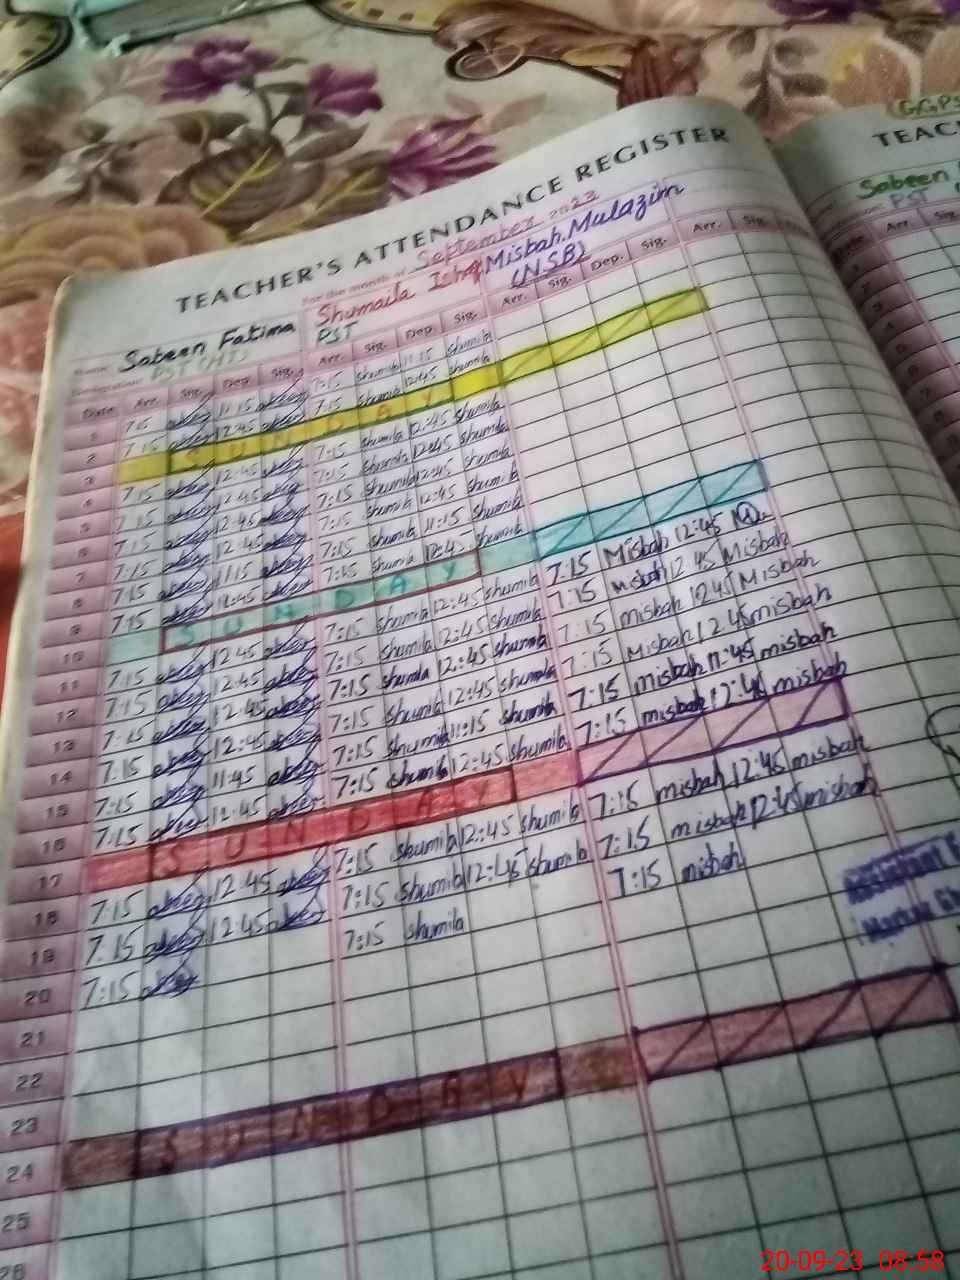 TEACHER'S ATTENDANCE REGISTER
For the month of September 2023
Sabeen Fatima Shumaila Misbah Mulazim
PST (HT) PST (NSB)
Date Arr. Sig. Dep. Sig. Arr. Sig. Dep. Sig. Arr. Sig. Dep. Sig. Arr. Sig.
1 7:15 11:15 7:15 Shumila 11:15 Shumila
2 7:15 12:45 7:15 Shumila 12:45 Shumila
3 SUNDAY
4 7:15 12:45 7:15 Shumila 12:45 Shumila
5 7:15 12:45 7:15 Shumila 12:45 Shumila
6 7:15 12:45 7:15 Shumila 12:45 Shumila
7 7:15 12:45 7:15 Shumila 12:45 Shumila
8 7:15 11:15 7:15 Shumila 11:15 Shumila
9 7:15 12:45 7:15 Shumila 12:45 Shumila
10 SUNDAY
11 7:15 12:45 7:15 Shumila 12:45 Shumila 7:15 Misbah 12:45
12 7:15 12:45 7:15 Shumila 12:45 Shumila 7:15 misbah 12:45 Misbah
13 7:15 12:45 7:15 Shumila 12:45 Shumila 7:15 misbah 12:45 Misbah
14 7:15 12:45 7:15 Shumila 12:45 Shumila 7:15 Misbah 12:45 misbah
15 7:15 11:45 7:15 Shumila 11:15 Shumila 7:15 misbah 11:45 misbah
16 7:15 12:45 7:15 Shumila 12:45 Shumila 7:15 misbah 12:45 misbah
17 SUNDAY
18 7:15 12:45 7:15 Shumila 12:45 Shumila 7:15 misbah 12:45 misbah
19 7:15 12:45 7:15 Shumila 12:45 Shumila 7:15 misbah 12:45 misbah
20 7:15 7:15 Shumila 7:15 misbah
21
22
23
24 SUNDAY
25
26
GGPS
TEAC
Sabeen
PST
Arr. Sig.
20-09-23 08:58